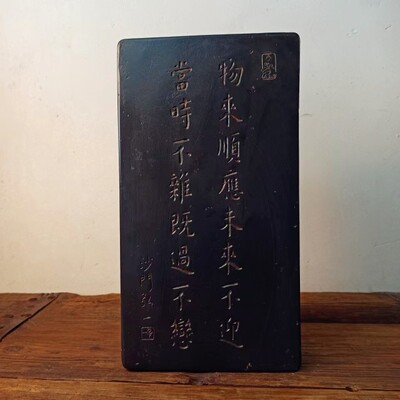 物來順應未來不迎
當時不雜既過不戀
沙門弘一